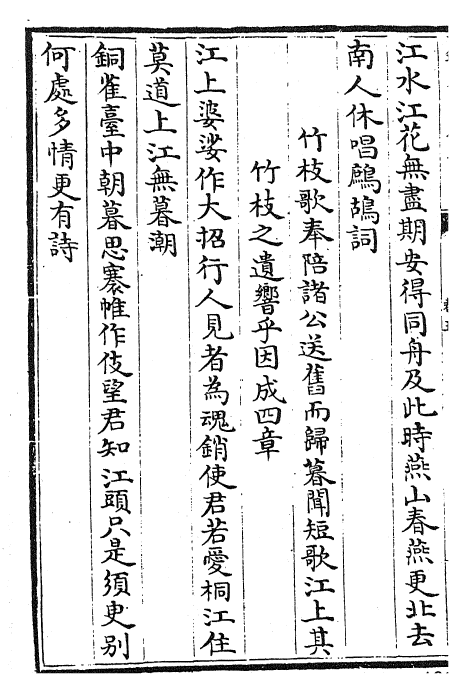 江水江花無盡期安得同舟及此時燕山春燕更北去
南人休唱鷓鴣詞
竹枝歌奉陪諸公送舊而歸暮聞短歌江上其
竹枝之遺響乎因成四章
江上婆娑作大招行人見者為魂銷使君若愛桐江住
莫道上江無暮潮
銅雀臺中朝暮思褰帷作伎望君知江頭只是須臾別
何處多情更有詩